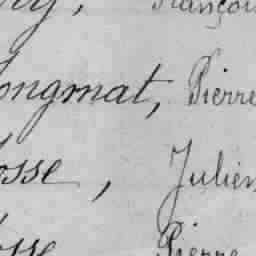 ry, François
ongmat, Pierre
osse, Julien
osse Pierre